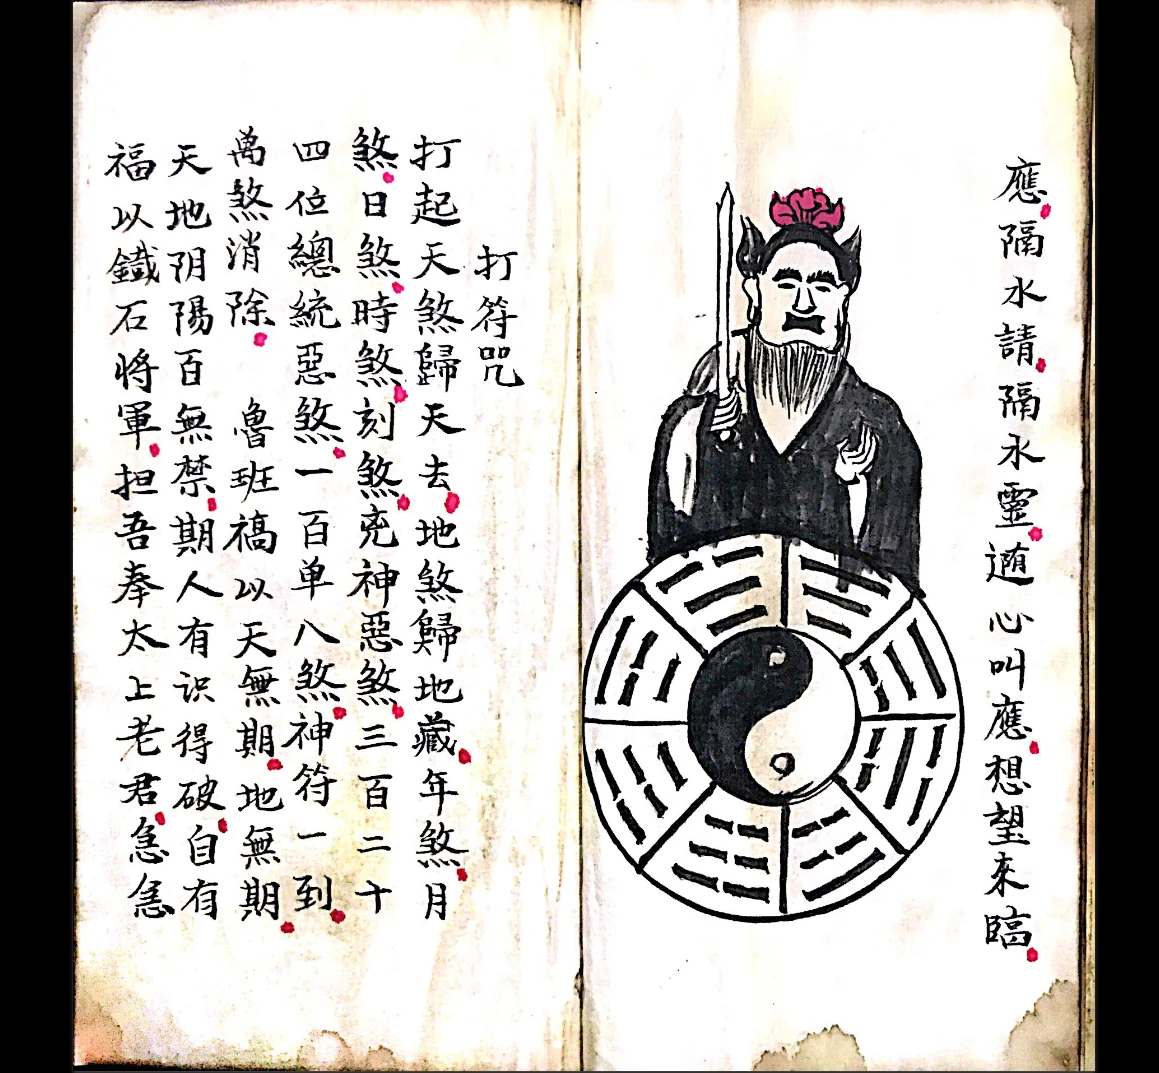 應隔水請隔水靈遁心叫應想望來臨
打符咒
打起天煞歸天去地煞歸地藏年煞月
煞日煞時煞刻煞兇神惡煞三百二十
四位總統惡煞一百单八煞神符一到
萬煞消除 魯班禞以天無期地無期
天地阴陽百無禁期人有识得破自有
福以鐵石将軍担吾奉太上老君急急